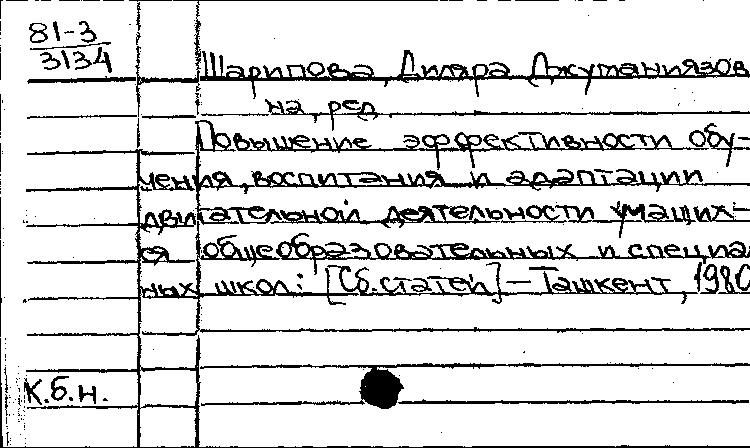 81-3
3134
Шарипова, Диляра Джуманиязов
на, ред.
Повышение эффективности обу-
чения, воспитания и адаптации
двигательной деятельности учащих-
ся общеобразовательных и специал
ных школ: [Сб. статей] - Ташкент, 1980
К.б.н.